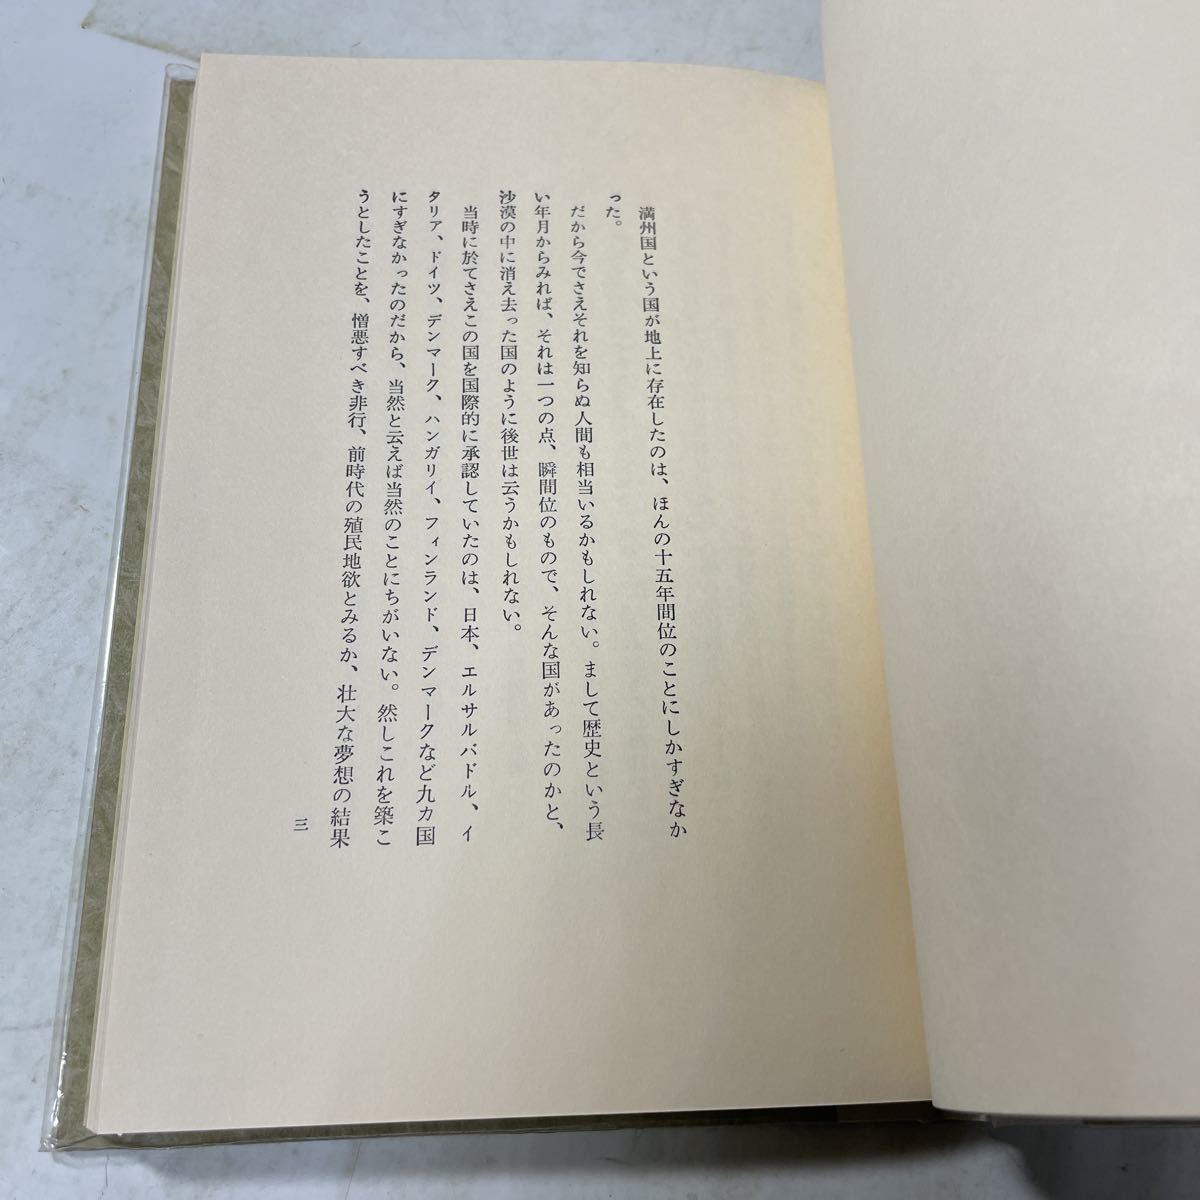 満州国という国が地上に存在したのは、ほんの十五年間位のことにしかすぎなか
った。
だから今でさえそれを知らぬ人間も相当いるかもしれない。まして歴史という長
い年月からみれば、それは一つの点、瞬間位のもので、そんな国があったのかと、
沙漠の中に消え去った国のように後世は云うかもしれない。
当時に於てさえこの国を国際的に承認していたのは、日本、エルサルバドル、イ
タリア、ドイツ、デンマーク、ハンガリイ、フィンランド、デンマークなど九カ国
にすぎなかったのだから、当然と云えば当然のことにちがいない。然しこれを築こ
うとしたことを、憎悪すべき非行、前時代の殖民地欲とみるか、壮大な夢想の結果
三